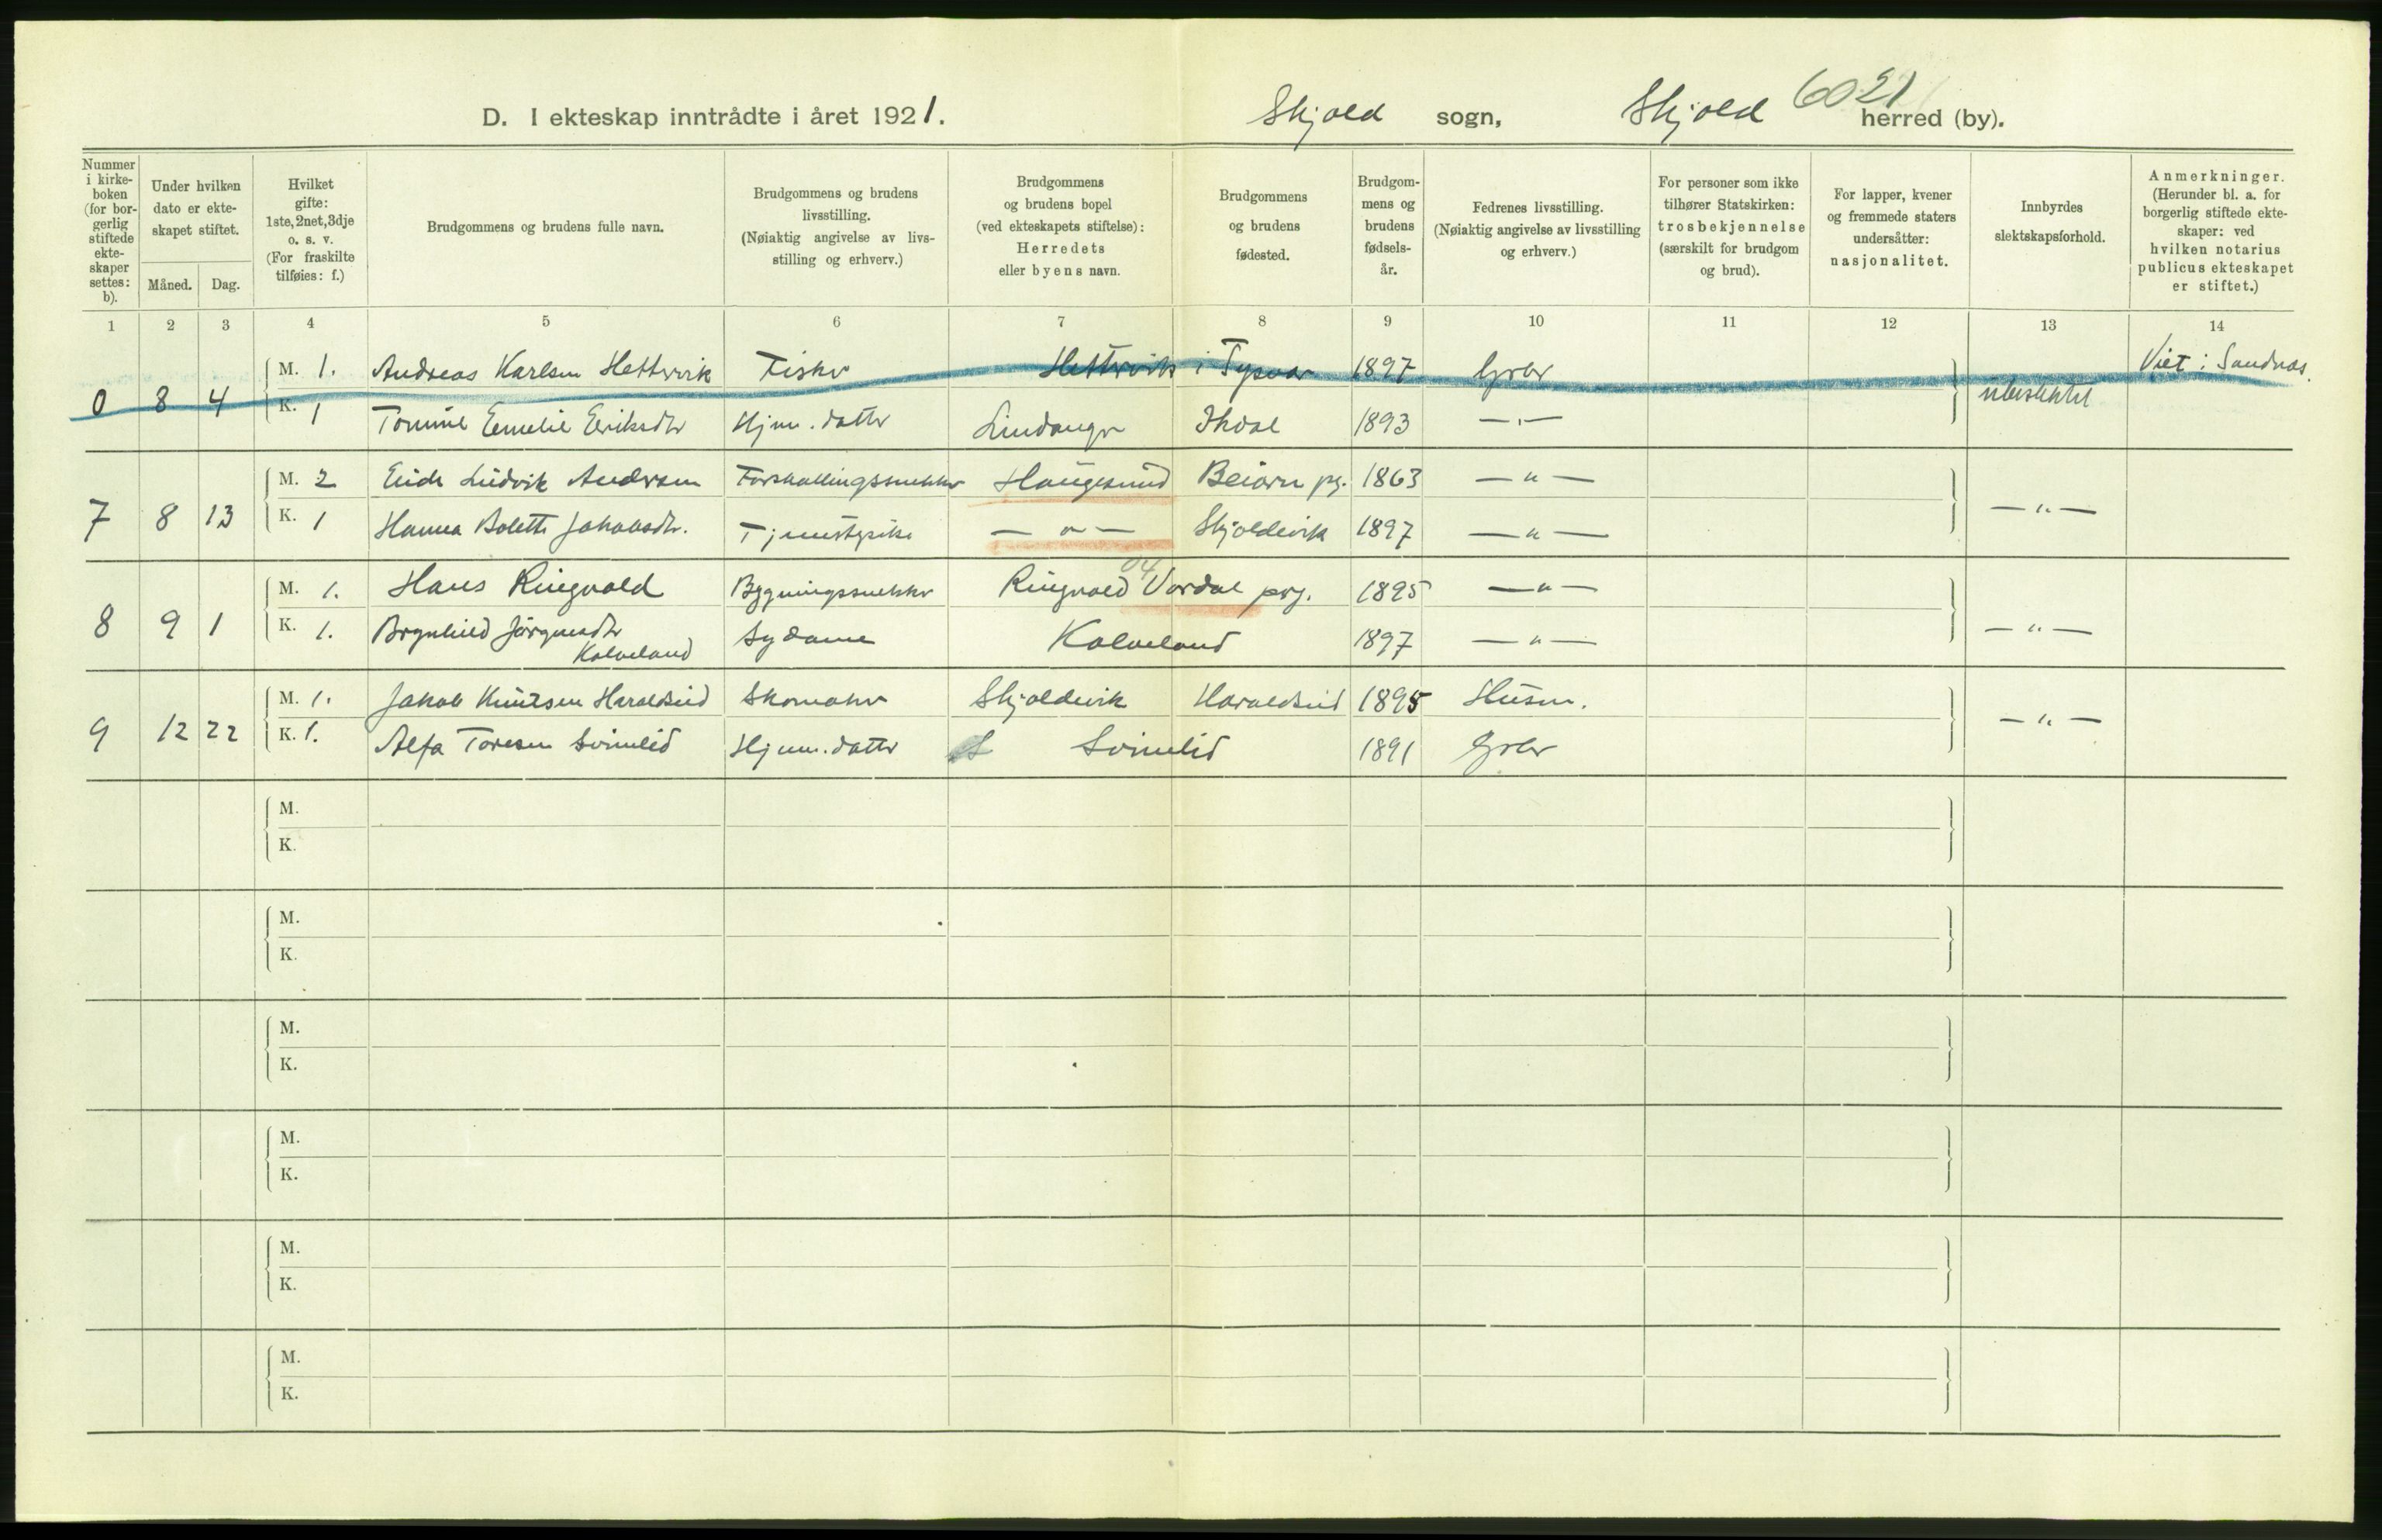 6021
D. I ekteskap inntrådte i året 1921. Skjold sogn, Skjold herred (by).
Nummer i kirke- boken (for bor- gerlig stiftede ekte- skaper settes: b).
Under hvilken dato er ekte- skapet stiftet.
Måned. Dag.
Hvilket gifte: 1ste, 2net, 3dje o. s. v. (For fraskilte tilføies: f.)
Brudgommens og brudens fulle navn.
Brudgommens og brudens livsstilling. (Nøiaktig angivelse av livs- stilling og erhverv.)
Brudgommens og brudens bopel (ved ekteskapets stiftelse): Herredets eller byens navn.
Brudgommens og brudens fødested.
Brudgom- mens og brudens fødsels- år.
Fedrenes livsstilling. (Nøiaktig angivelse av livsstilling og erhverv.)
For personer som ikke tilhører Statskirken: trosbekjennelse (særskilt for brudgom og brud).
For lapper, kvener og fremmede staters undersåtter: nasjonalitet.
Innbyrdes slektskapsforhold.
Anmerkninger. (Herunder bl. a. for borgerlig stiftede ekte- skaper: ved hvilken notarius publicus ekteskapet er stiftet.)
1 2 3 4 5 6 7 8 9 10 11 12 13 14
0 8 4 M. 1. Andreas Karlsen Hettervik Fisker Hettervik i Tysvær 1897 Grbr ubeslektet Viet i Sandnes.
K. 1 Emelie Eriksdtr Hjem. datter Lindanger 1893 — „ —
7 8 13 M. 2 Ludvik Andersen Forskallingssnekker Haugesund Beiarn pg. 1863 — „ — — „ —
K. 1 Hanna Bolette Johansdtr. Tjenestepike — „ — Skjoldevik 1897 — „ —
8 9 1 M. 1. Hans Ringvold Bygningssnekker Ringvold 04 Verdal prg. 1895 — „ — — „ —
K. 1. Brynhild Jörgensdtr Kalveland Sydame Kalveland 1897 — „ —
9 12 22 M. 1. Jakob Knutsen Haraldseid Skomaker Skjoldevik Haraldseid 1895 Husm. — „ —
K. 1. Alfa Toresen Svinelid Hjem. datter S Svinelid 1891 Grbr
M.
K.
M.
K.
M.
K.
M.
K.
M.
K.
M.
K.